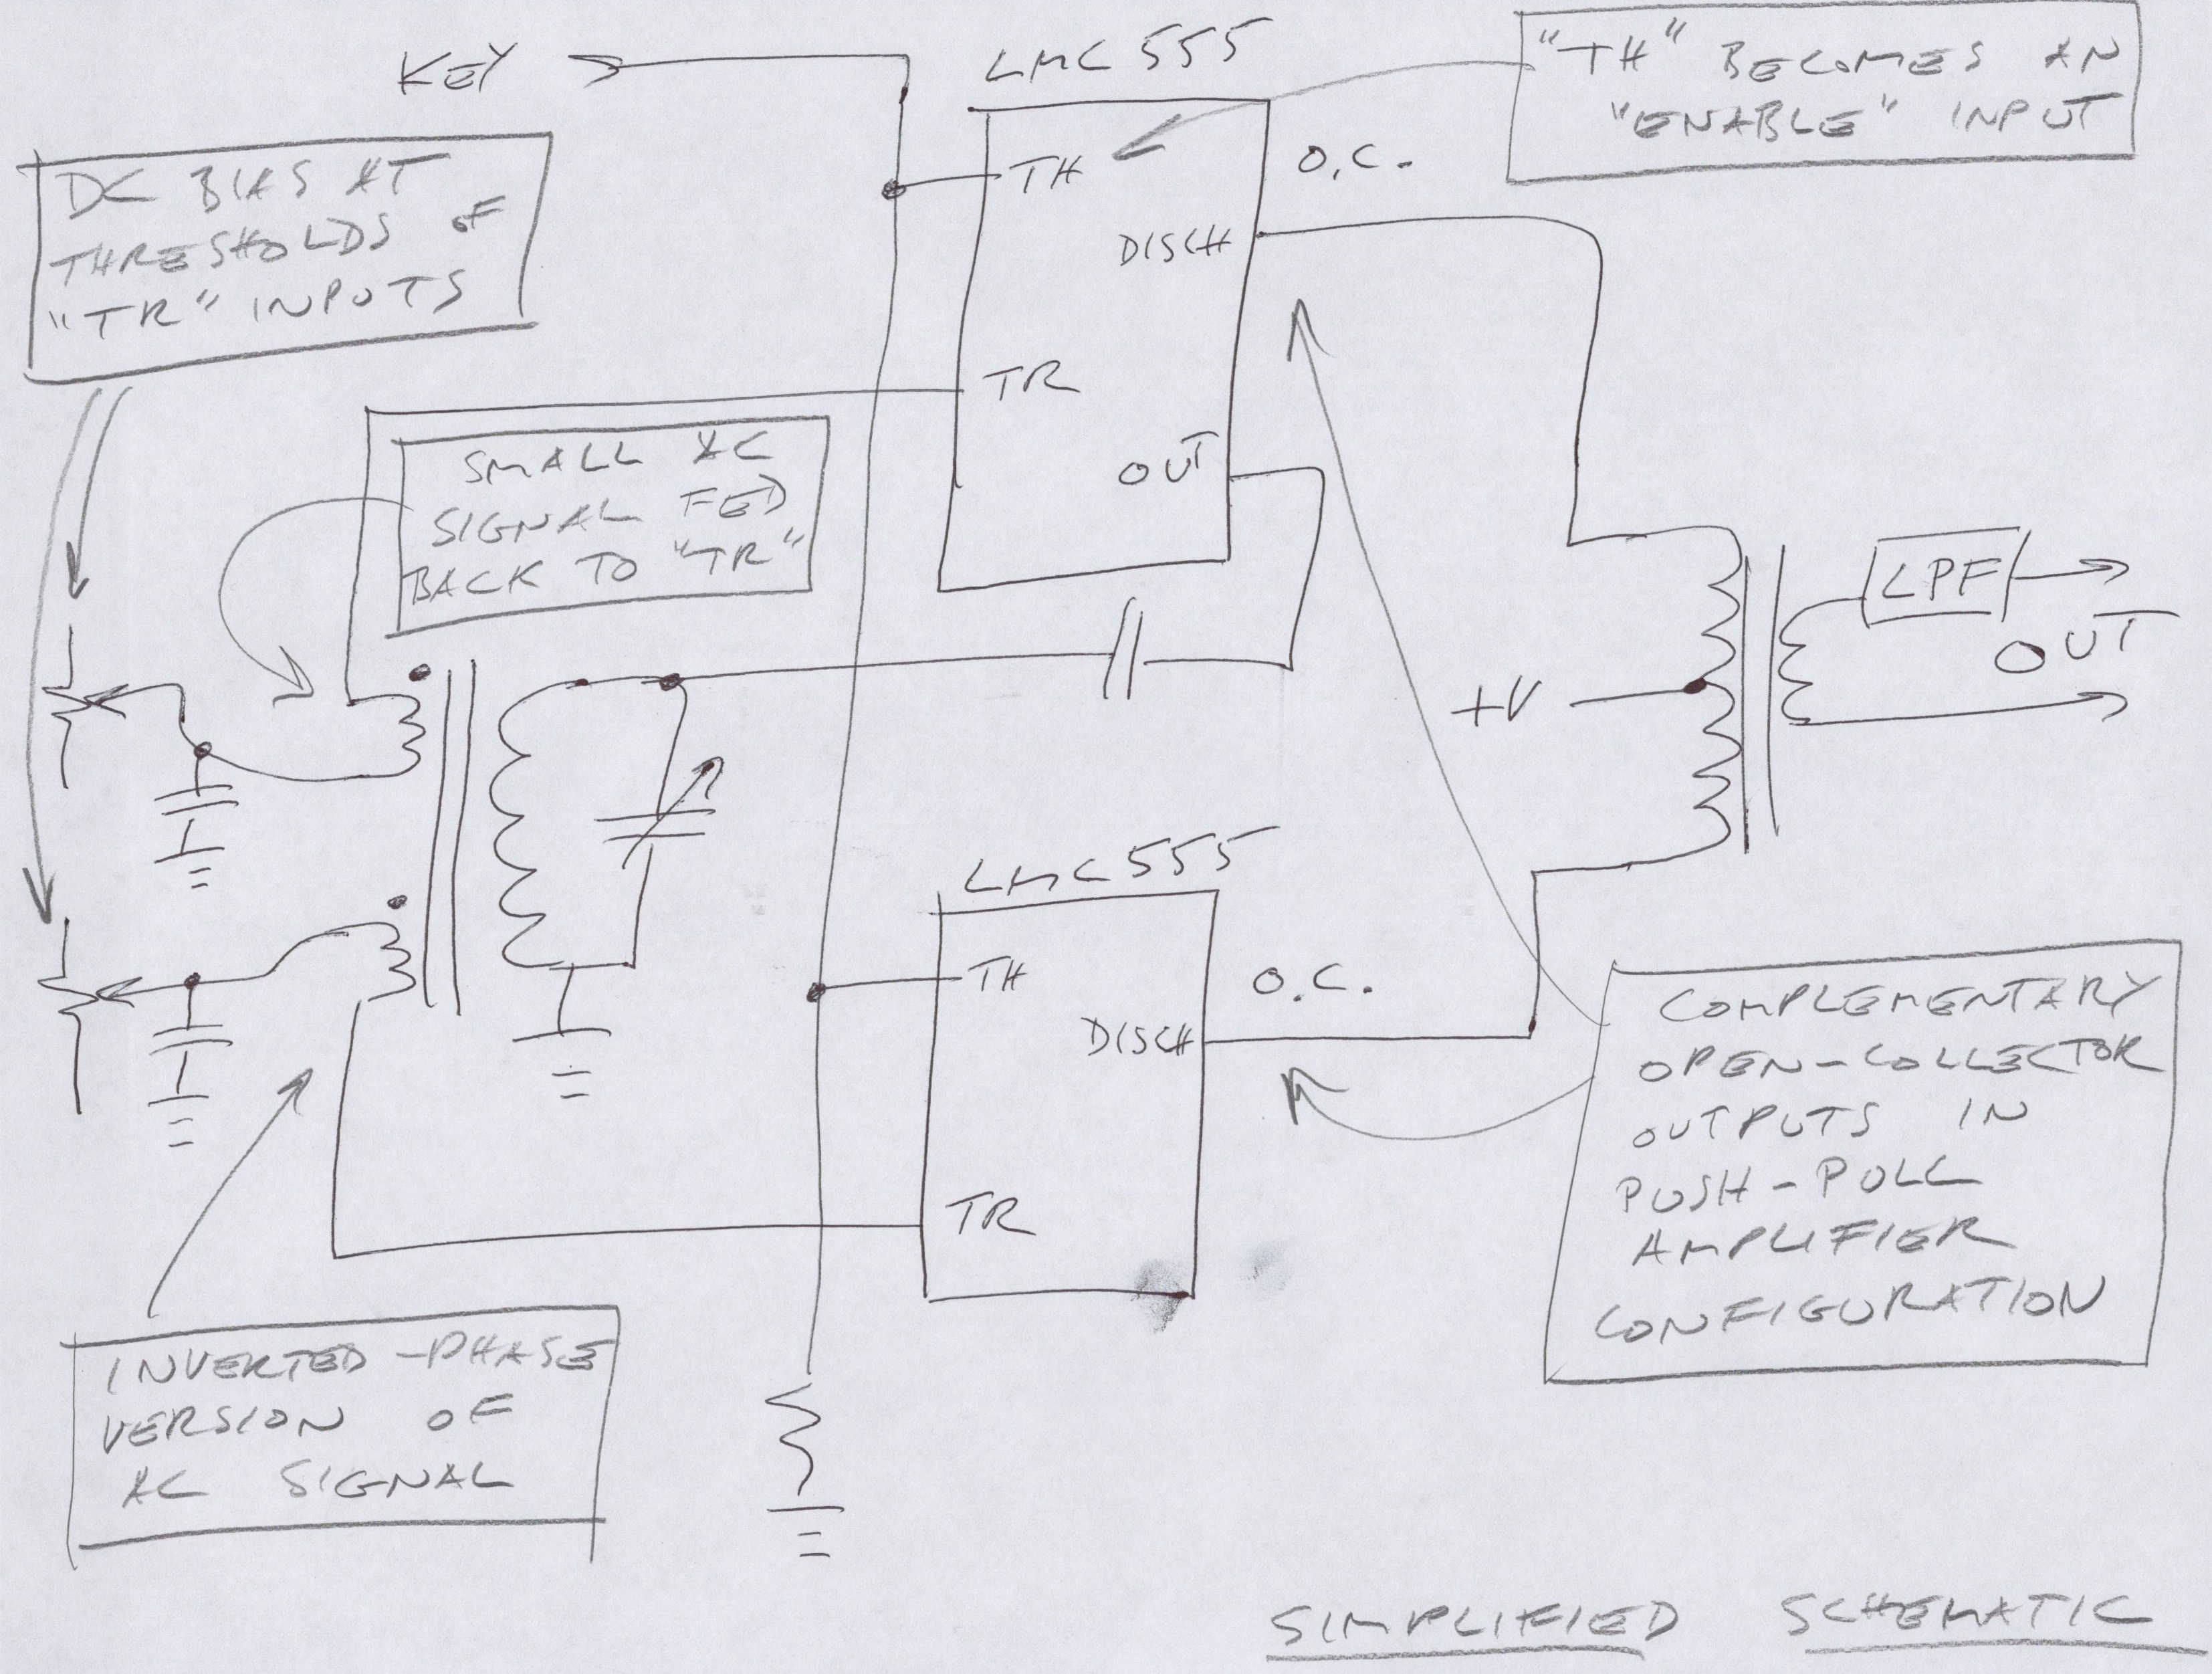 KEY
LMC 555
"TH" BECOMES AN
"ENABLE" INPUT
DC BIAS AT
THRESHOLDS OF
"TR" INPUTS
TH
O.C.
DISCH
TR
OUT
SMALL AC
SIGNAL FED
BACK TO "TR"
LPF
OUT
+V
LMC 555
TH
O.C.
DISCH
TR
COMPLEMENTARY
OPEN-COLLECTOR
OUTPUTS IN
PUSH-PULL
AMPLIFIER
CONFIGURATION
INVERTED-PHASE
VERSION OF
AC SIGNAL
SIMPLIFIED SCHEMATIC